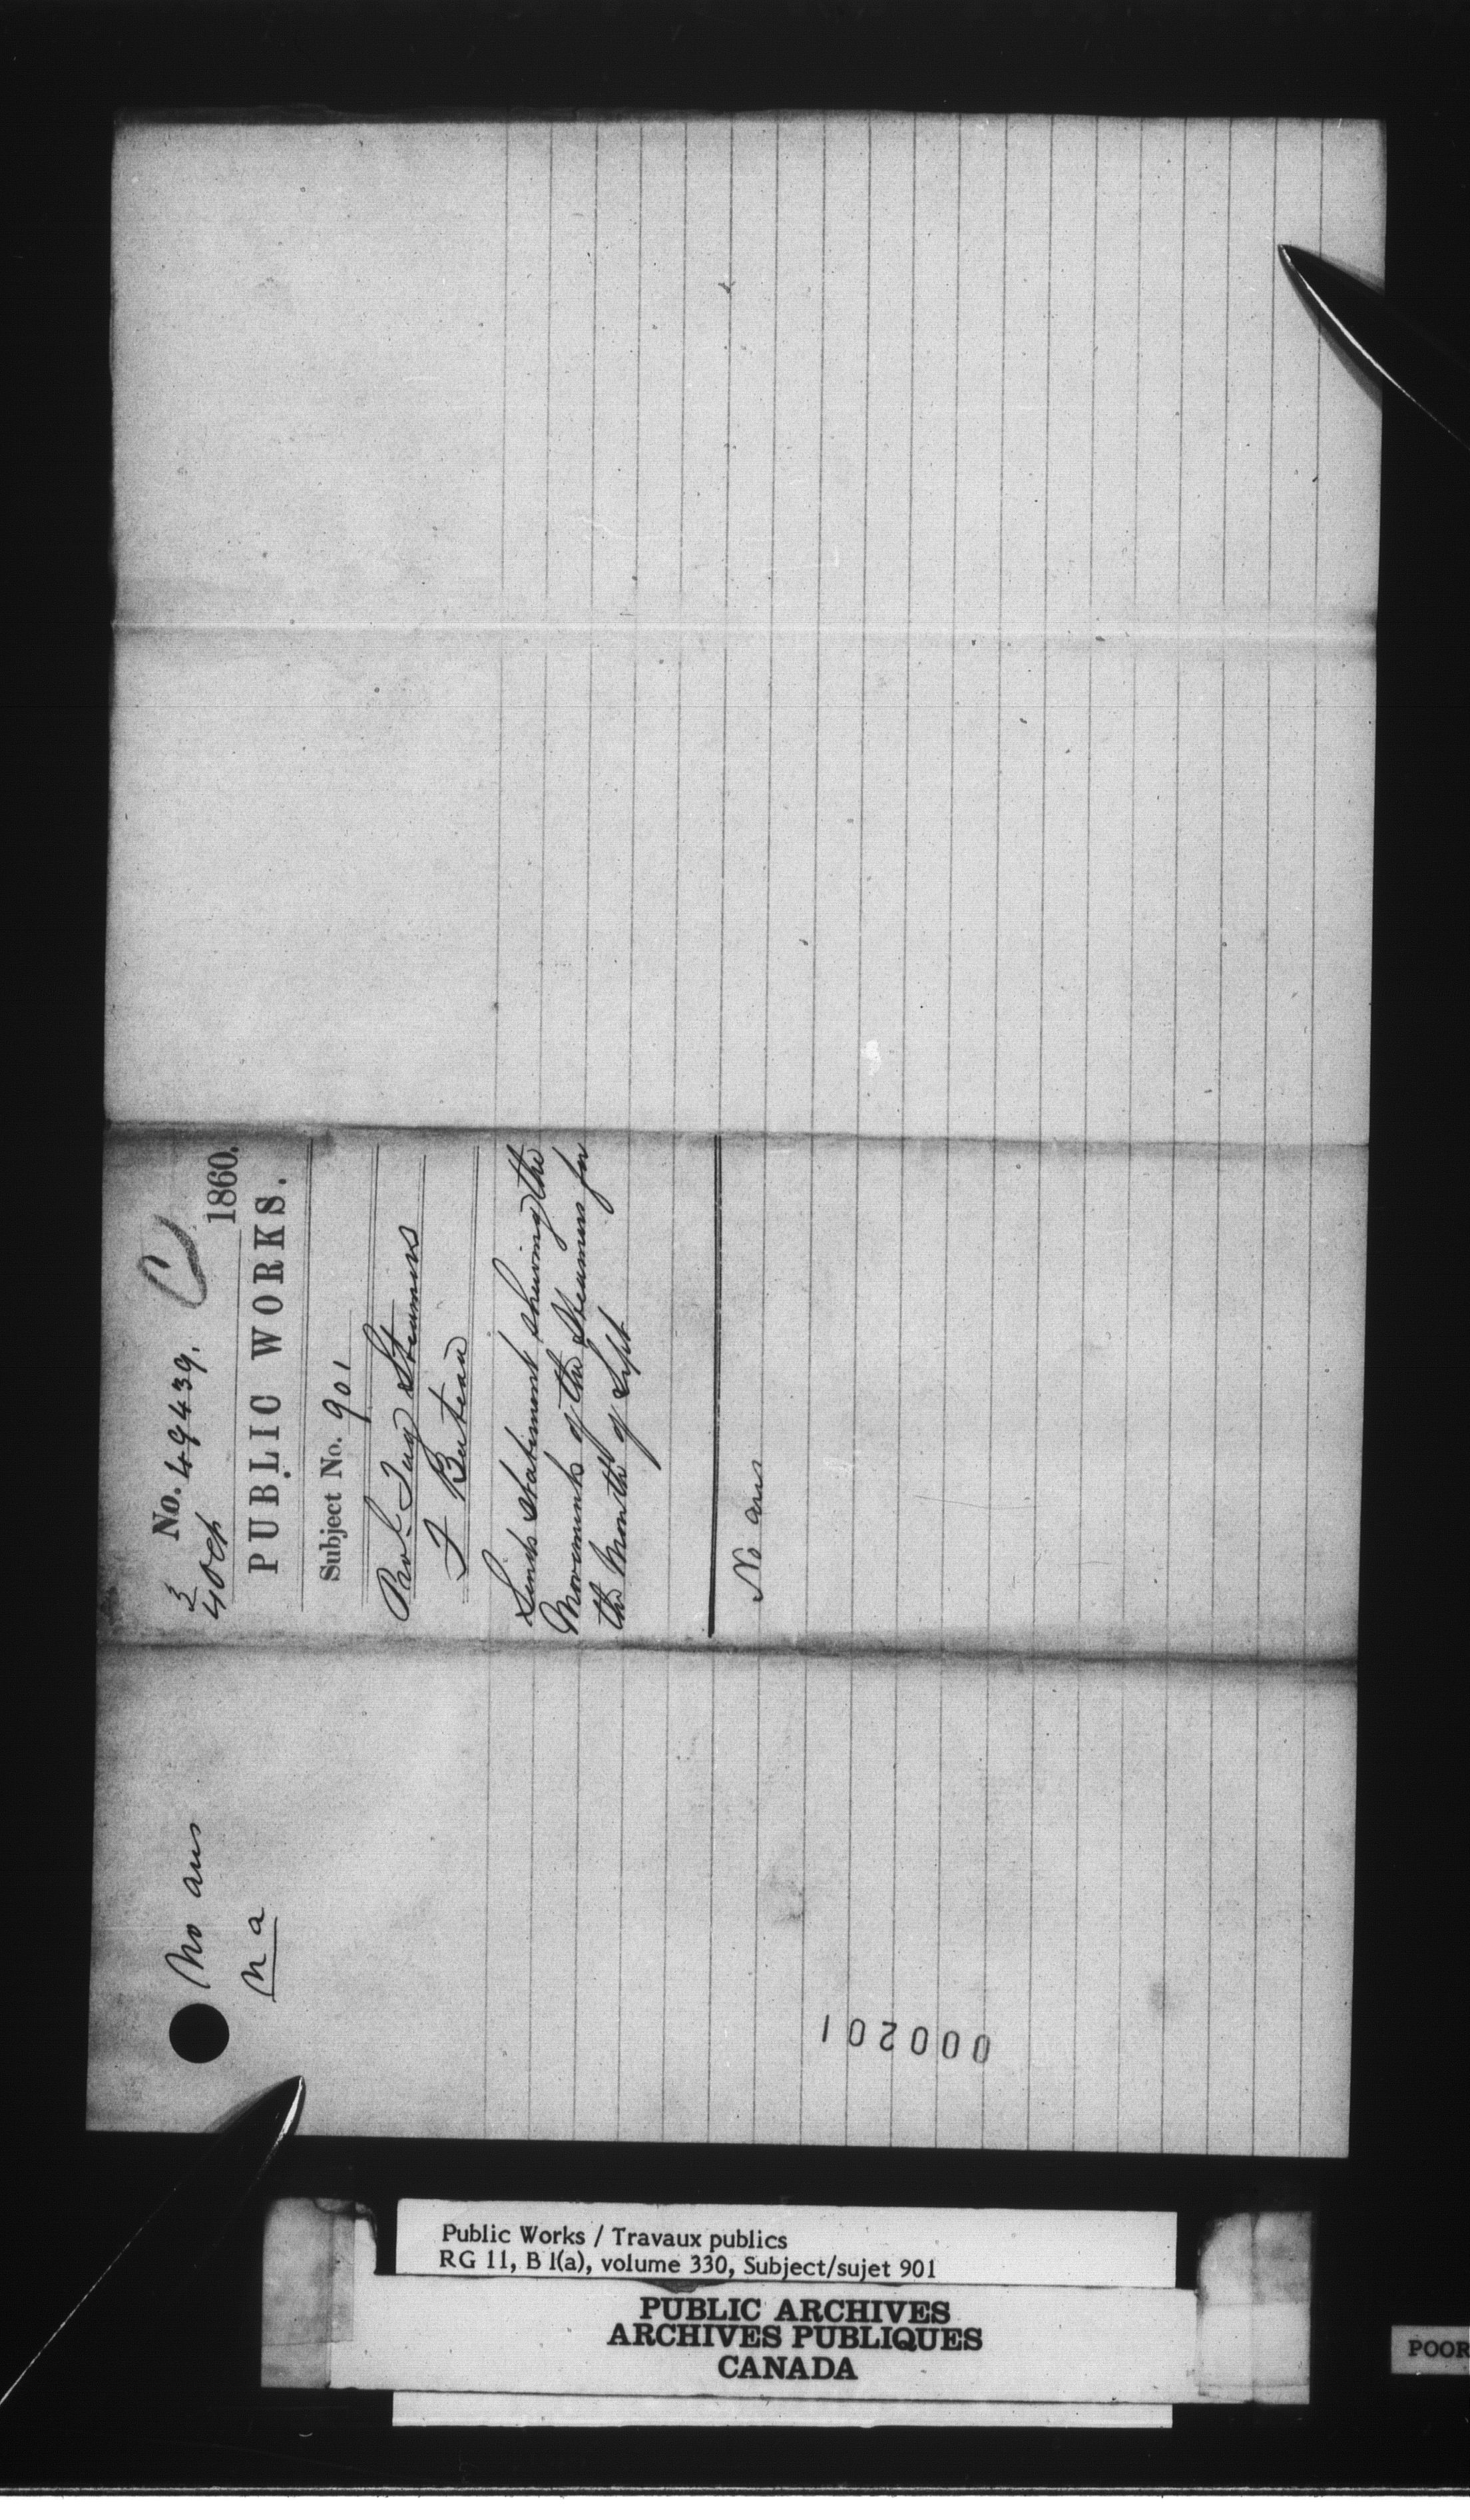 No. 49439.
3
4 Oct 1860.
PUBLIC WORKS.
Subject No. 901
Prov<sup>l</sup> Tug Steamers
F Buteau
Sends statement shewing the
Movements of the Steamers for
the Month of Sept
No ans
No ans
n a
000201
Public Works / Travaux publics
RG 11, B 1(a), volume 330, Subject/sujet 901
PUBLIC ARCHIVES
ARCHIVES PUBLIQUES
CANADA
POOR